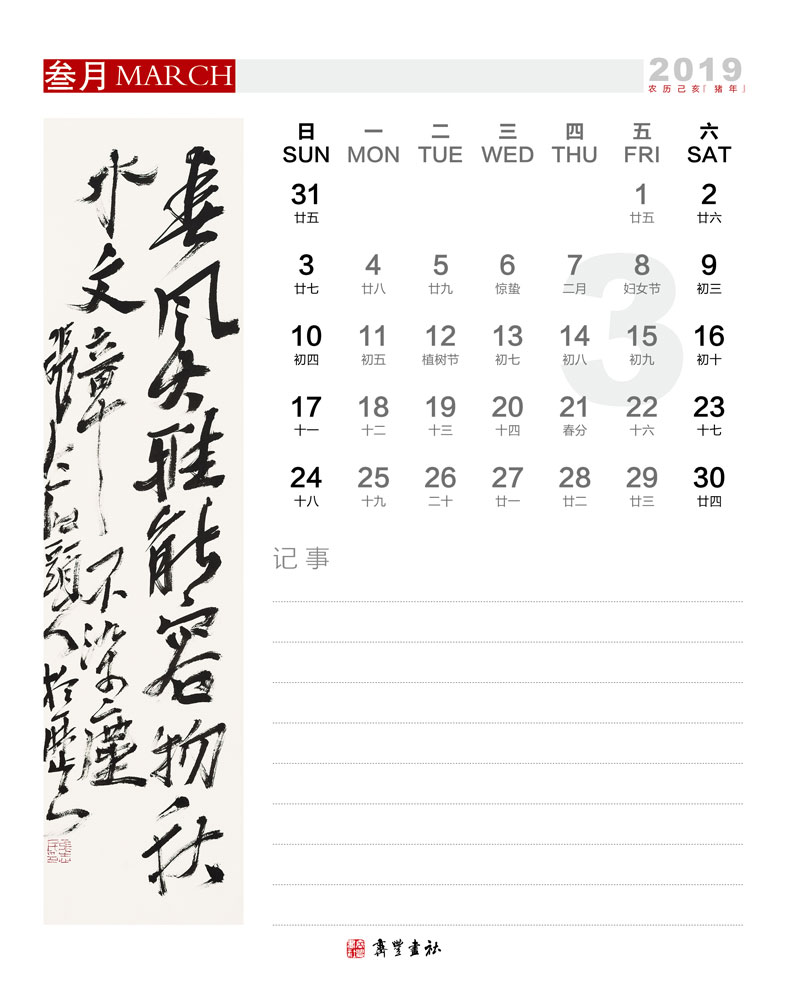 叁月 MARCH
2019
农历己亥「猪年」
春风大雅能容物秋
水文章不染尘
日 一 二 三 四 五 六
SUN MON TUE WED THU FRI SAT
31 1 2
廿五 廿五 廿六
3
3 4 5 6 7 8 9
廿七 廿八 廿九 惊蛰 二月 妇女节 初三
10 11 12 13 14 15 16
初四 初五 植树节 初七 初八 初九 初十
17 18 19 20 21 22 23
十一 十二 十三 十四 春分 十六 十七
24 25 26 27 28 29 30
十八 十九 二十 廿一 廿二 廿三 廿四
记事